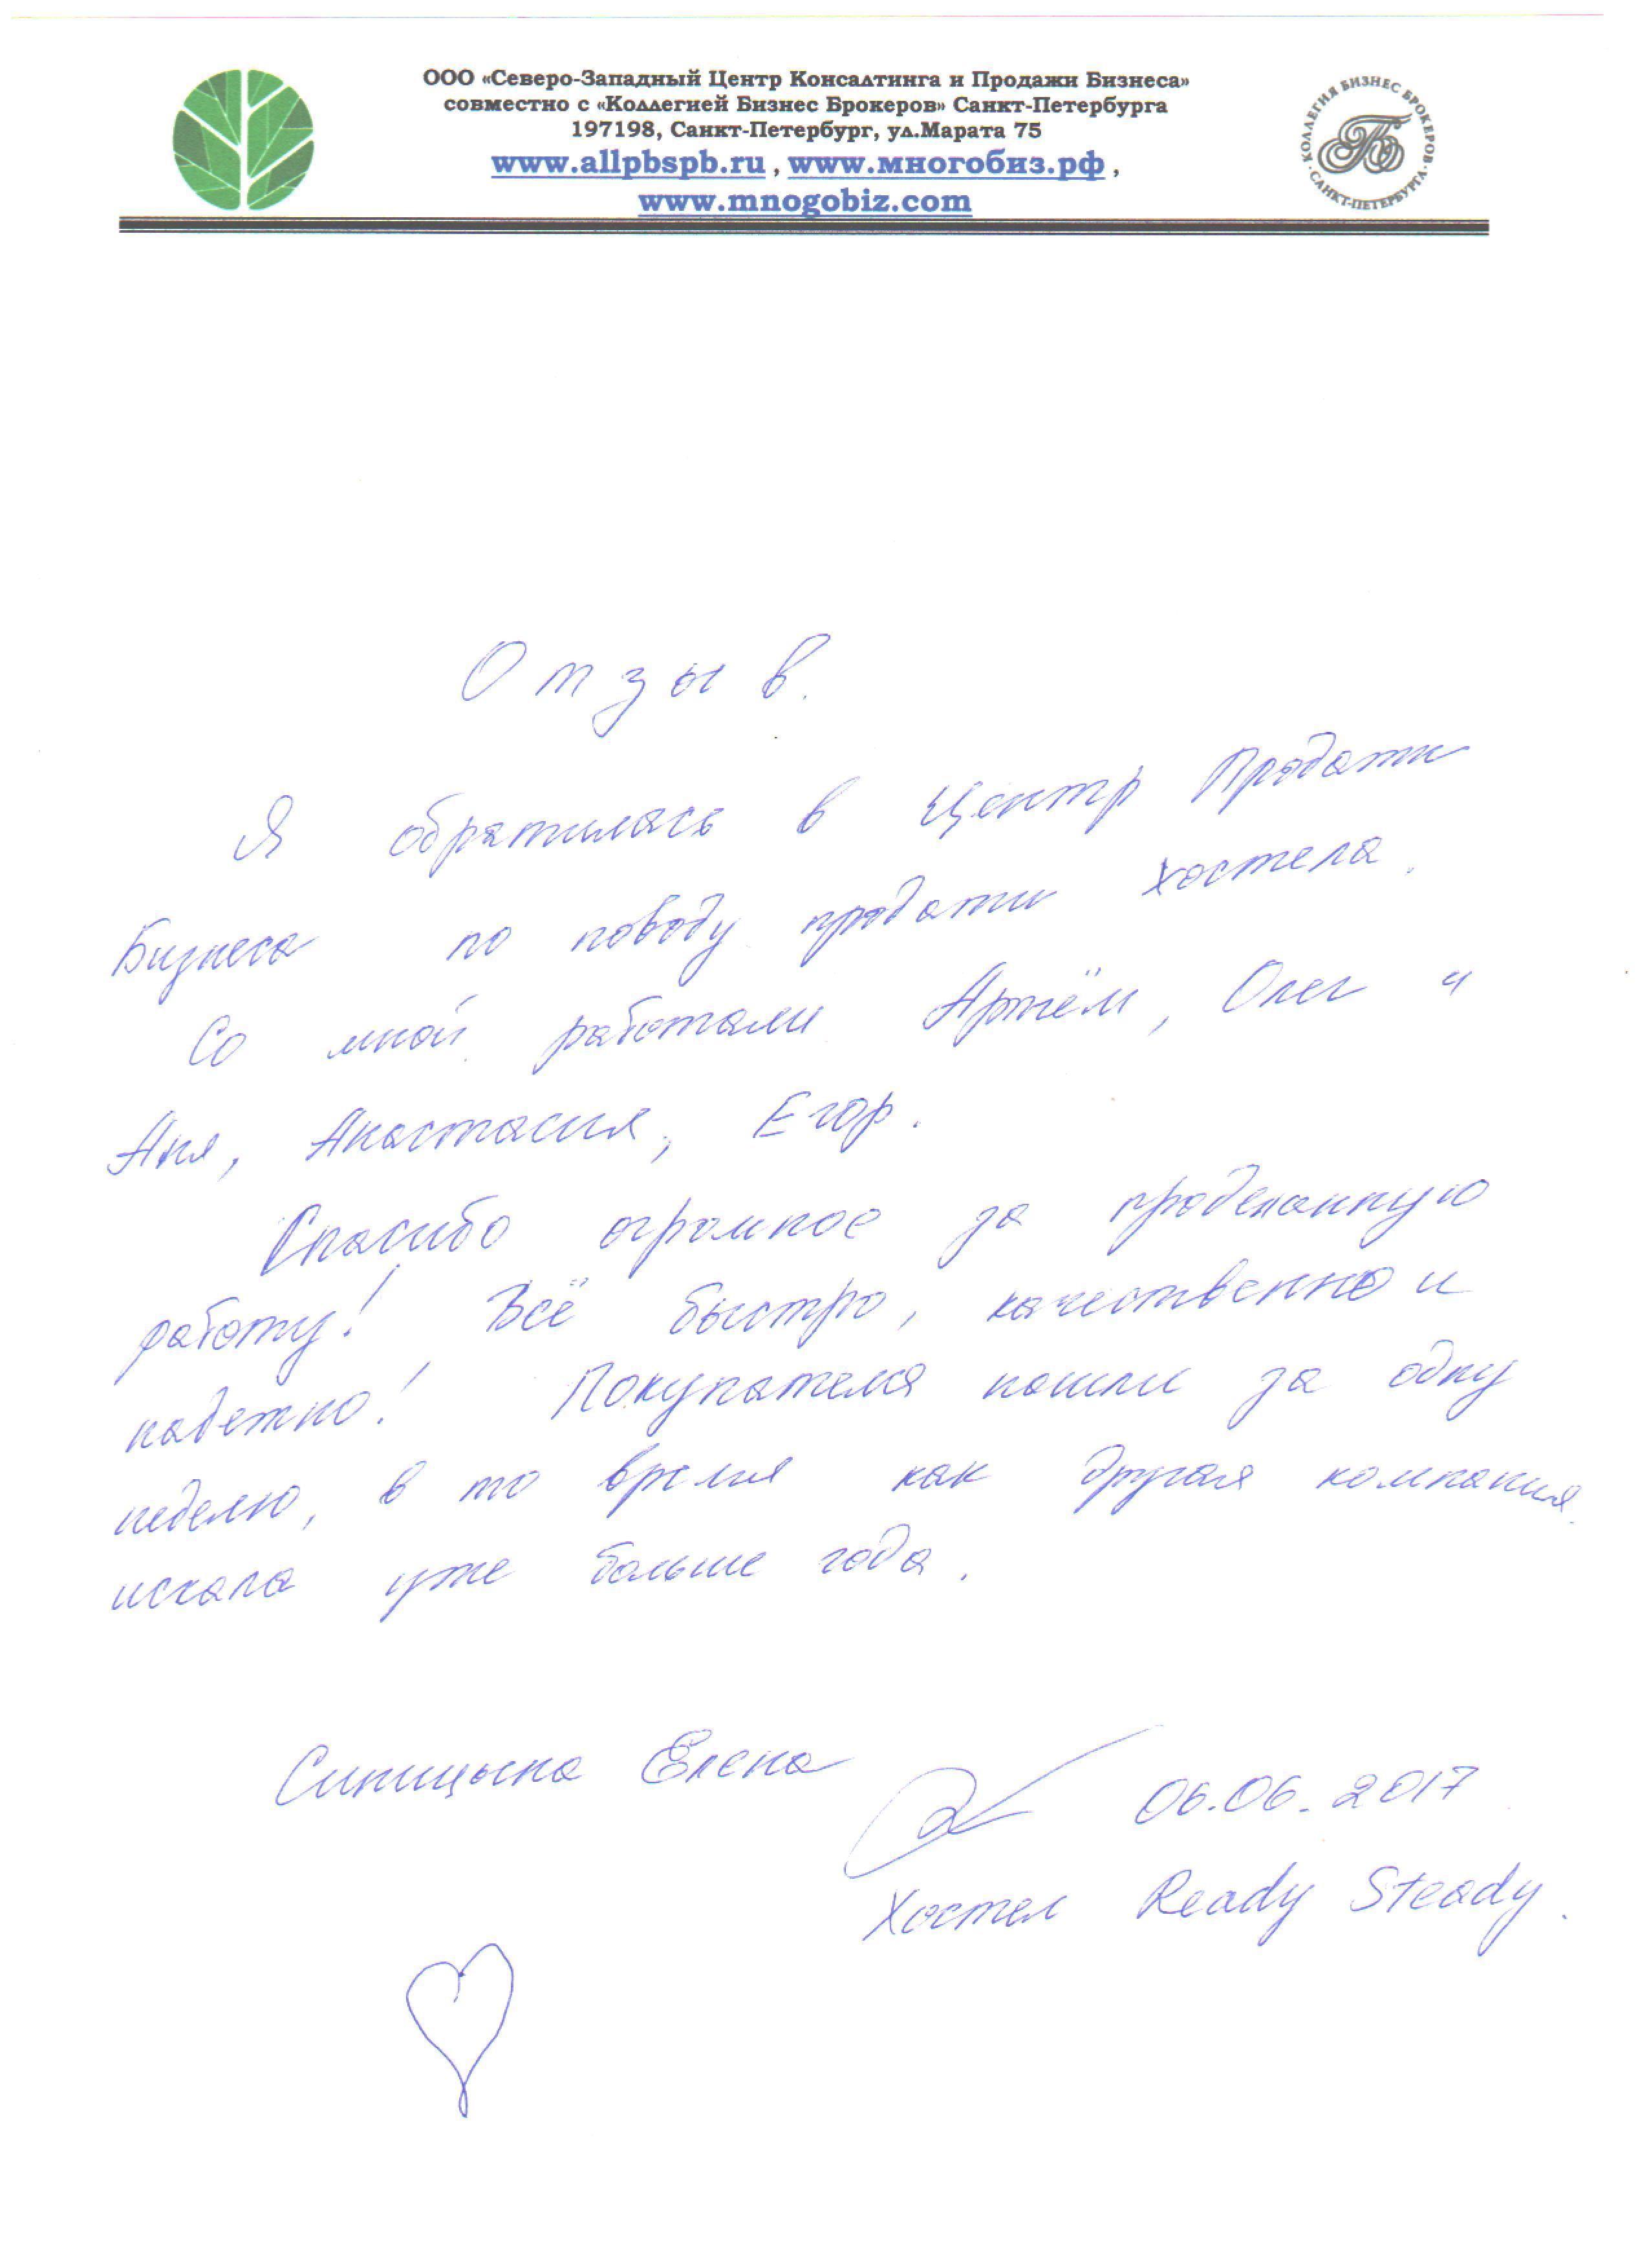 ООО «Северо-Западный Центр Консалтинга и Продажи Бизнеса»
совместно с «Коллегией Бизнес Брокеров» Санкт-Петербурга
197198, Санкт-Петербург, ул.Марата 75
www.allpbspb.ru , www.многобиз.рф ,
www.mnogobiz.com
КОЛЛЕГИЯ БИЗНЕС БРОКЕРОВ · САНКТ-ПЕТЕРБУРГА ·
Отзыв.
Я обратилась в Центр Продажи
Бизнеса по поводу продажи хостела.
Со мной работали Артём, Олег и
Аня, Анастасия, Егор.
Спасибо огромное за проделанную
работу! Всё быстро, качественно и
надежно! Покупателя нашли за одну
неделю, в то время как другая компания
искала уже больше года.
Синицына Елена
06.06.2017
Хостел Ready Steady.